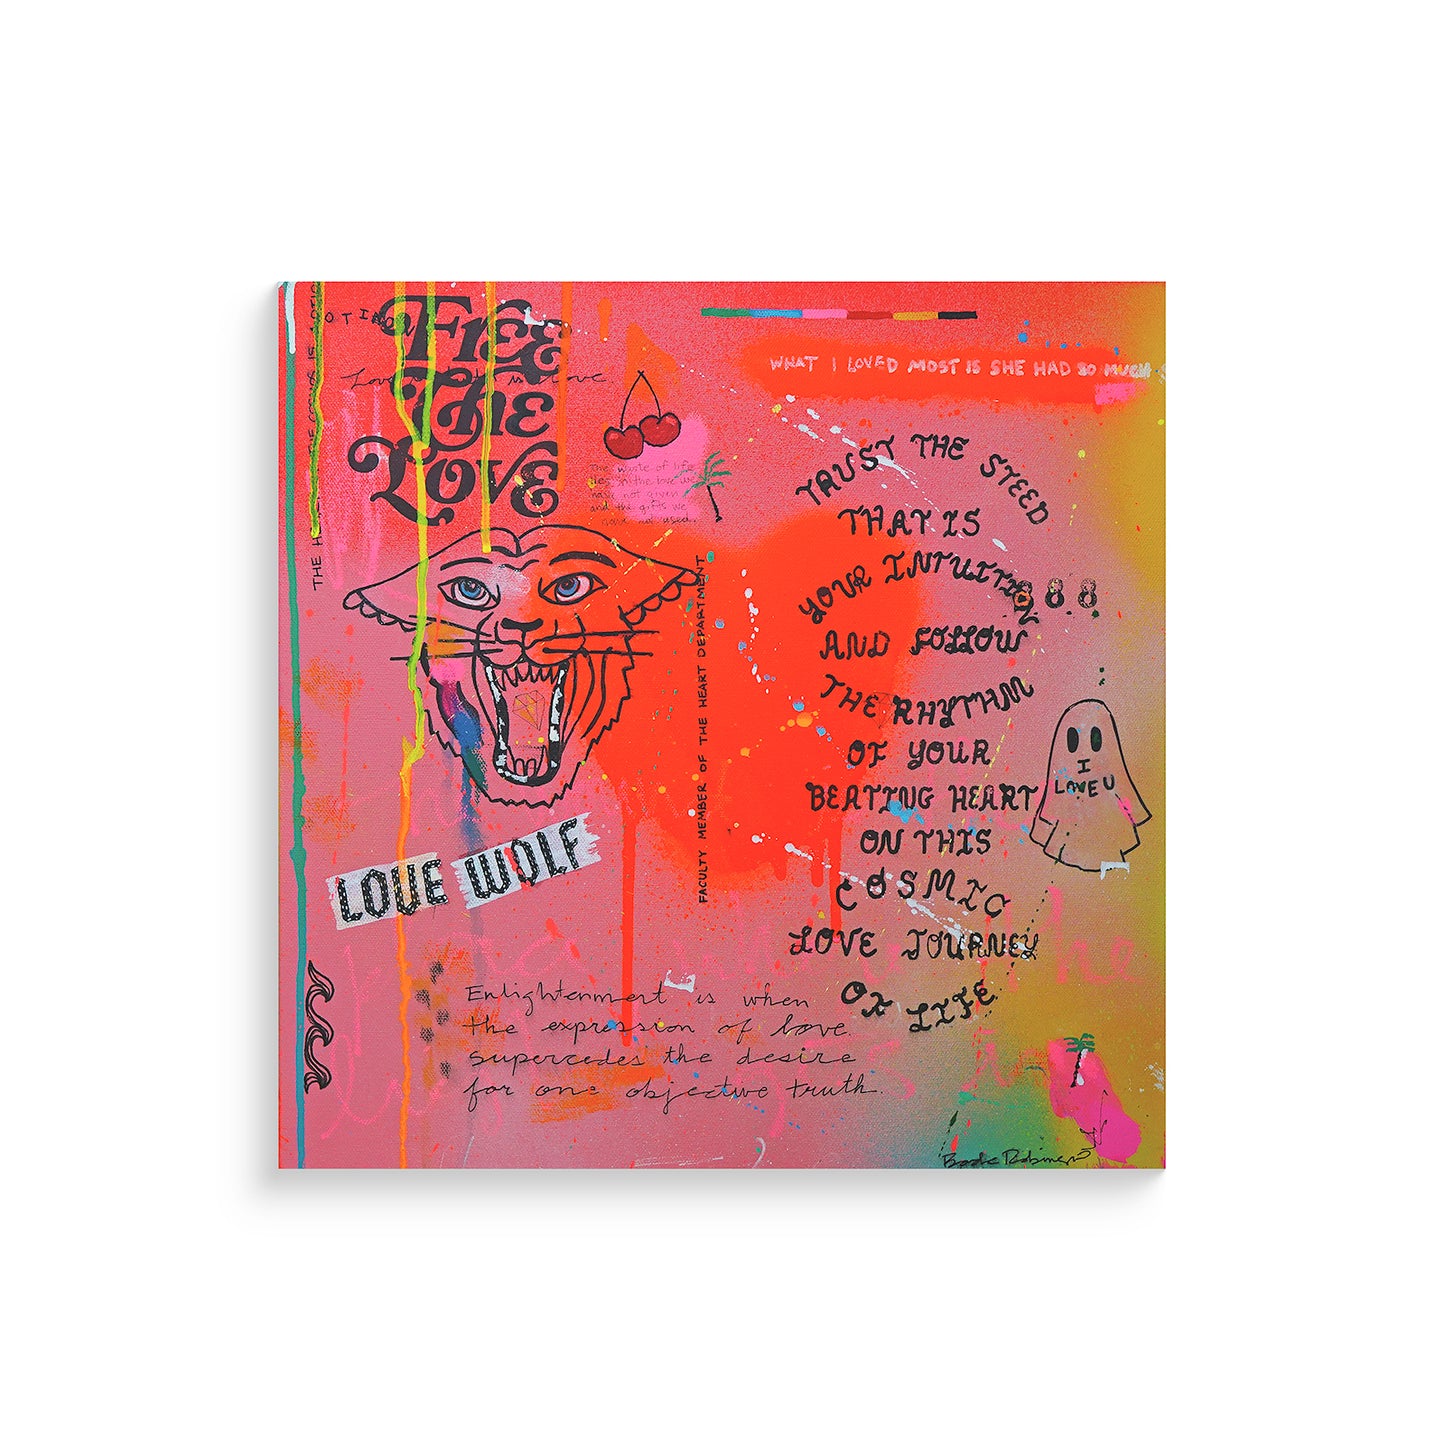 FREE
THE
LOVE
WHAT I LOVED MOST IS SHE HAD SO MUCH
The waste of life
lies in the love we
have not given
and the gifts we
have not used.
TRUST THE STEED
THAT IS
YOUR INTUITION
AND FOLLOW
THE RHYTHM
OF YOUR
BEATING HEART
ON THIS
COSMIC
LOVE JOURNEY
OF LIFE
888
FACULTY MEMBER OF THE HEART DEPARTMENT
I
LOVE U
LOVE WOLF
Enlightenment is when
the expression of love
supercedes the desire
for one objective truth.